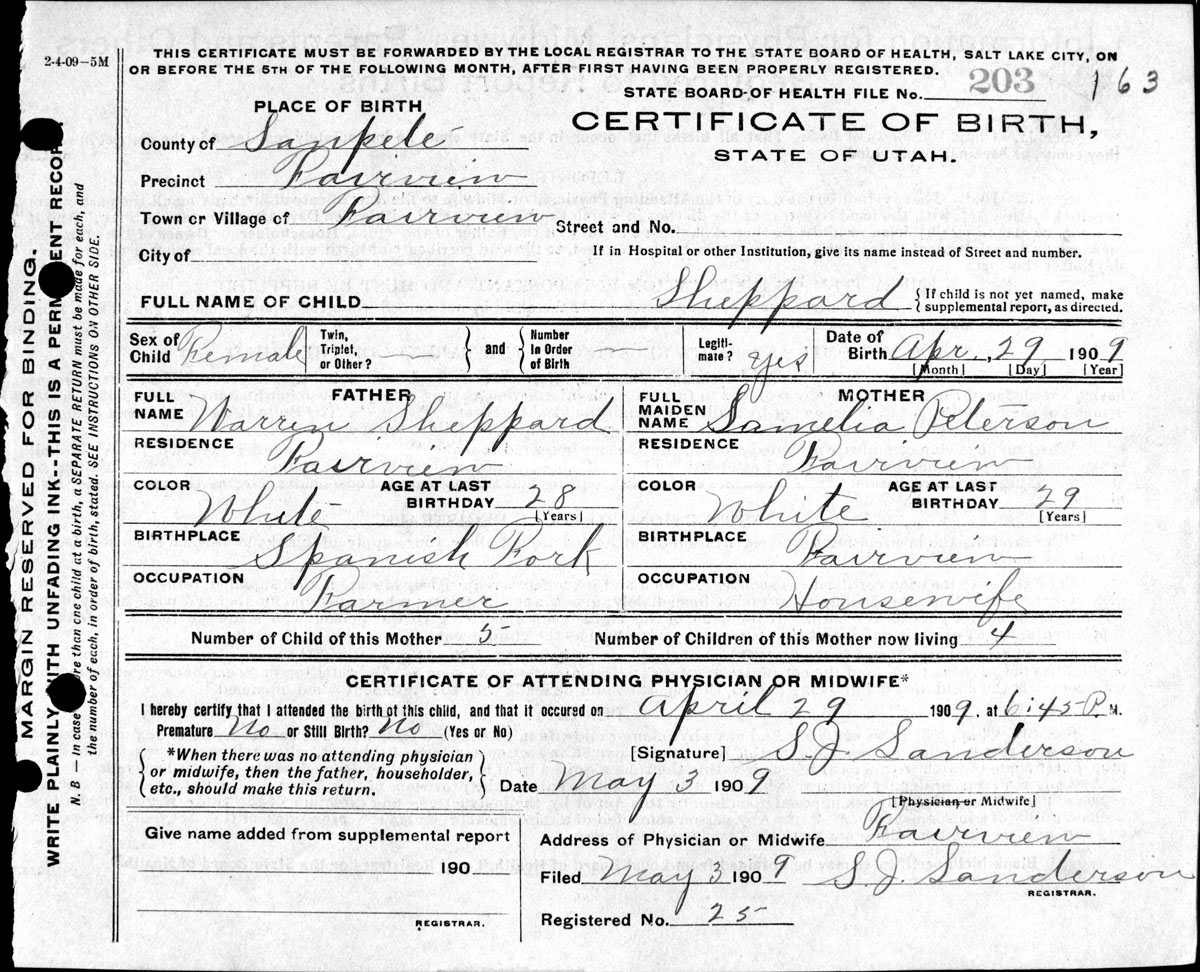 2-4-09-5M
THIS CERTIFICATE MUST BE FORWARDED BY THE LOCAL REGISTRAR TO THE STATE BOARD OF HEALTH, SALT LAKE CITY, ON
OR BEFORE THE 5TH OF THE FOLLOWING MONTH, AFTER FIRST HAVING BEEN PROPERLY REGISTERED.
STATE BOARD OF HEALTH FILE No. 203 163
PLACE OF BIRTH
CERTIFICATE OF BIRTH,
STATE OF UTAH.
County of Sanpete
Precinct Fairview
Town or Village of Fairview
Street and No.
City of
If in Hospital or other Institution, give its name instead of Street and number.
FULL NAME OF CHILD Sheppard {If child is not yet named, make supplemental report, as directed.
Sex of Child Female Twin, Triplet, or Other? } and { Number In Order of Birth Legiti-mate? yes Date of Birth Apr. 29 1909
[Month] [Day] [Year]
FATHER
FULL NAME Warren Sheppard
RESIDENCE Fairview
COLOR White AGE AT LAST BIRTHDAY 28 [Years]
BIRTHPLACE Spanish Fork
OCCUPATION Farmer
MOTHER
FULL MAIDEN NAME Samelia Peterson
RESIDENCE Fairview
COLOR White AGE AT LAST BIRTHDAY 29 [Years]
BIRTHPLACE Fairview
OCCUPATION Housewife
Number of Child of this Mother 5 Number of Children of this Mother now living 4
CERTIFICATE OF ATTENDING PHYSICIAN OR MIDWIFE*
I hereby certify that I attended the birth of this child, and that it occured on April 29 1909. at 6:45 P. M.
Premature No or Still Birth? No (Yes or No)
[Signature] S. J. Sanderson
{*When there was no attending physician
or midwife, then the father, householder,
etc., should make this return.}
Date May 3 1909
[Physician or Midwife]
Give name added from supplemental report
190
REGISTRAR.
Address of Physician or Midwife Fairview
Filed May 3 1909 S. J. Sanderson
REGISTRAR.
Registered No. 25
MARGIN RESERVED FOR BINDING.
WRITE PLAINLY WITH UNFADING INK--THIS IS A PERMANENT RECORD
N. B — In case more than one child at a birth, a SEPARATE RETURN must be made for each, and
the number of each, in order of birth, stated. SEE INSTRUCTIONS ON OTHER SIDE.